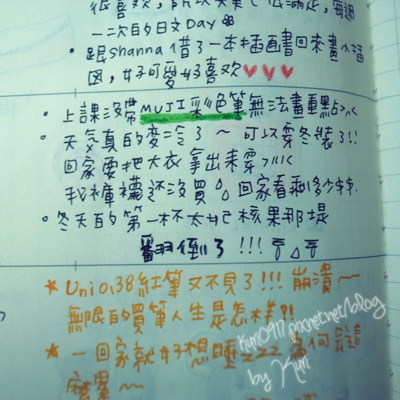 很喜歡，所以天氣也滿足，每週
一二次百的日文Day
•跟shanna借了一本插画書回來畫小插
圖，好可愛好喜歡♥♥♥
•上課沒帶MUJI彩色筆無法畫重點>"<
•天氣真的變冷了～可以穿冬裝了!!
回家要把大衣拿出來穿>///<
我褲襪還沒買，回家看剩多少件.
•冬天的第一杯太妃核果那堤
翻倒了!!!
★Uni0.38紅筆又不見了!!!崩潰～
無限的買筆人生是怎樣?!
★一回家就好想睡zzz為何話這
疲累～
kuri0917.pixnet.net/blog
by Kuri